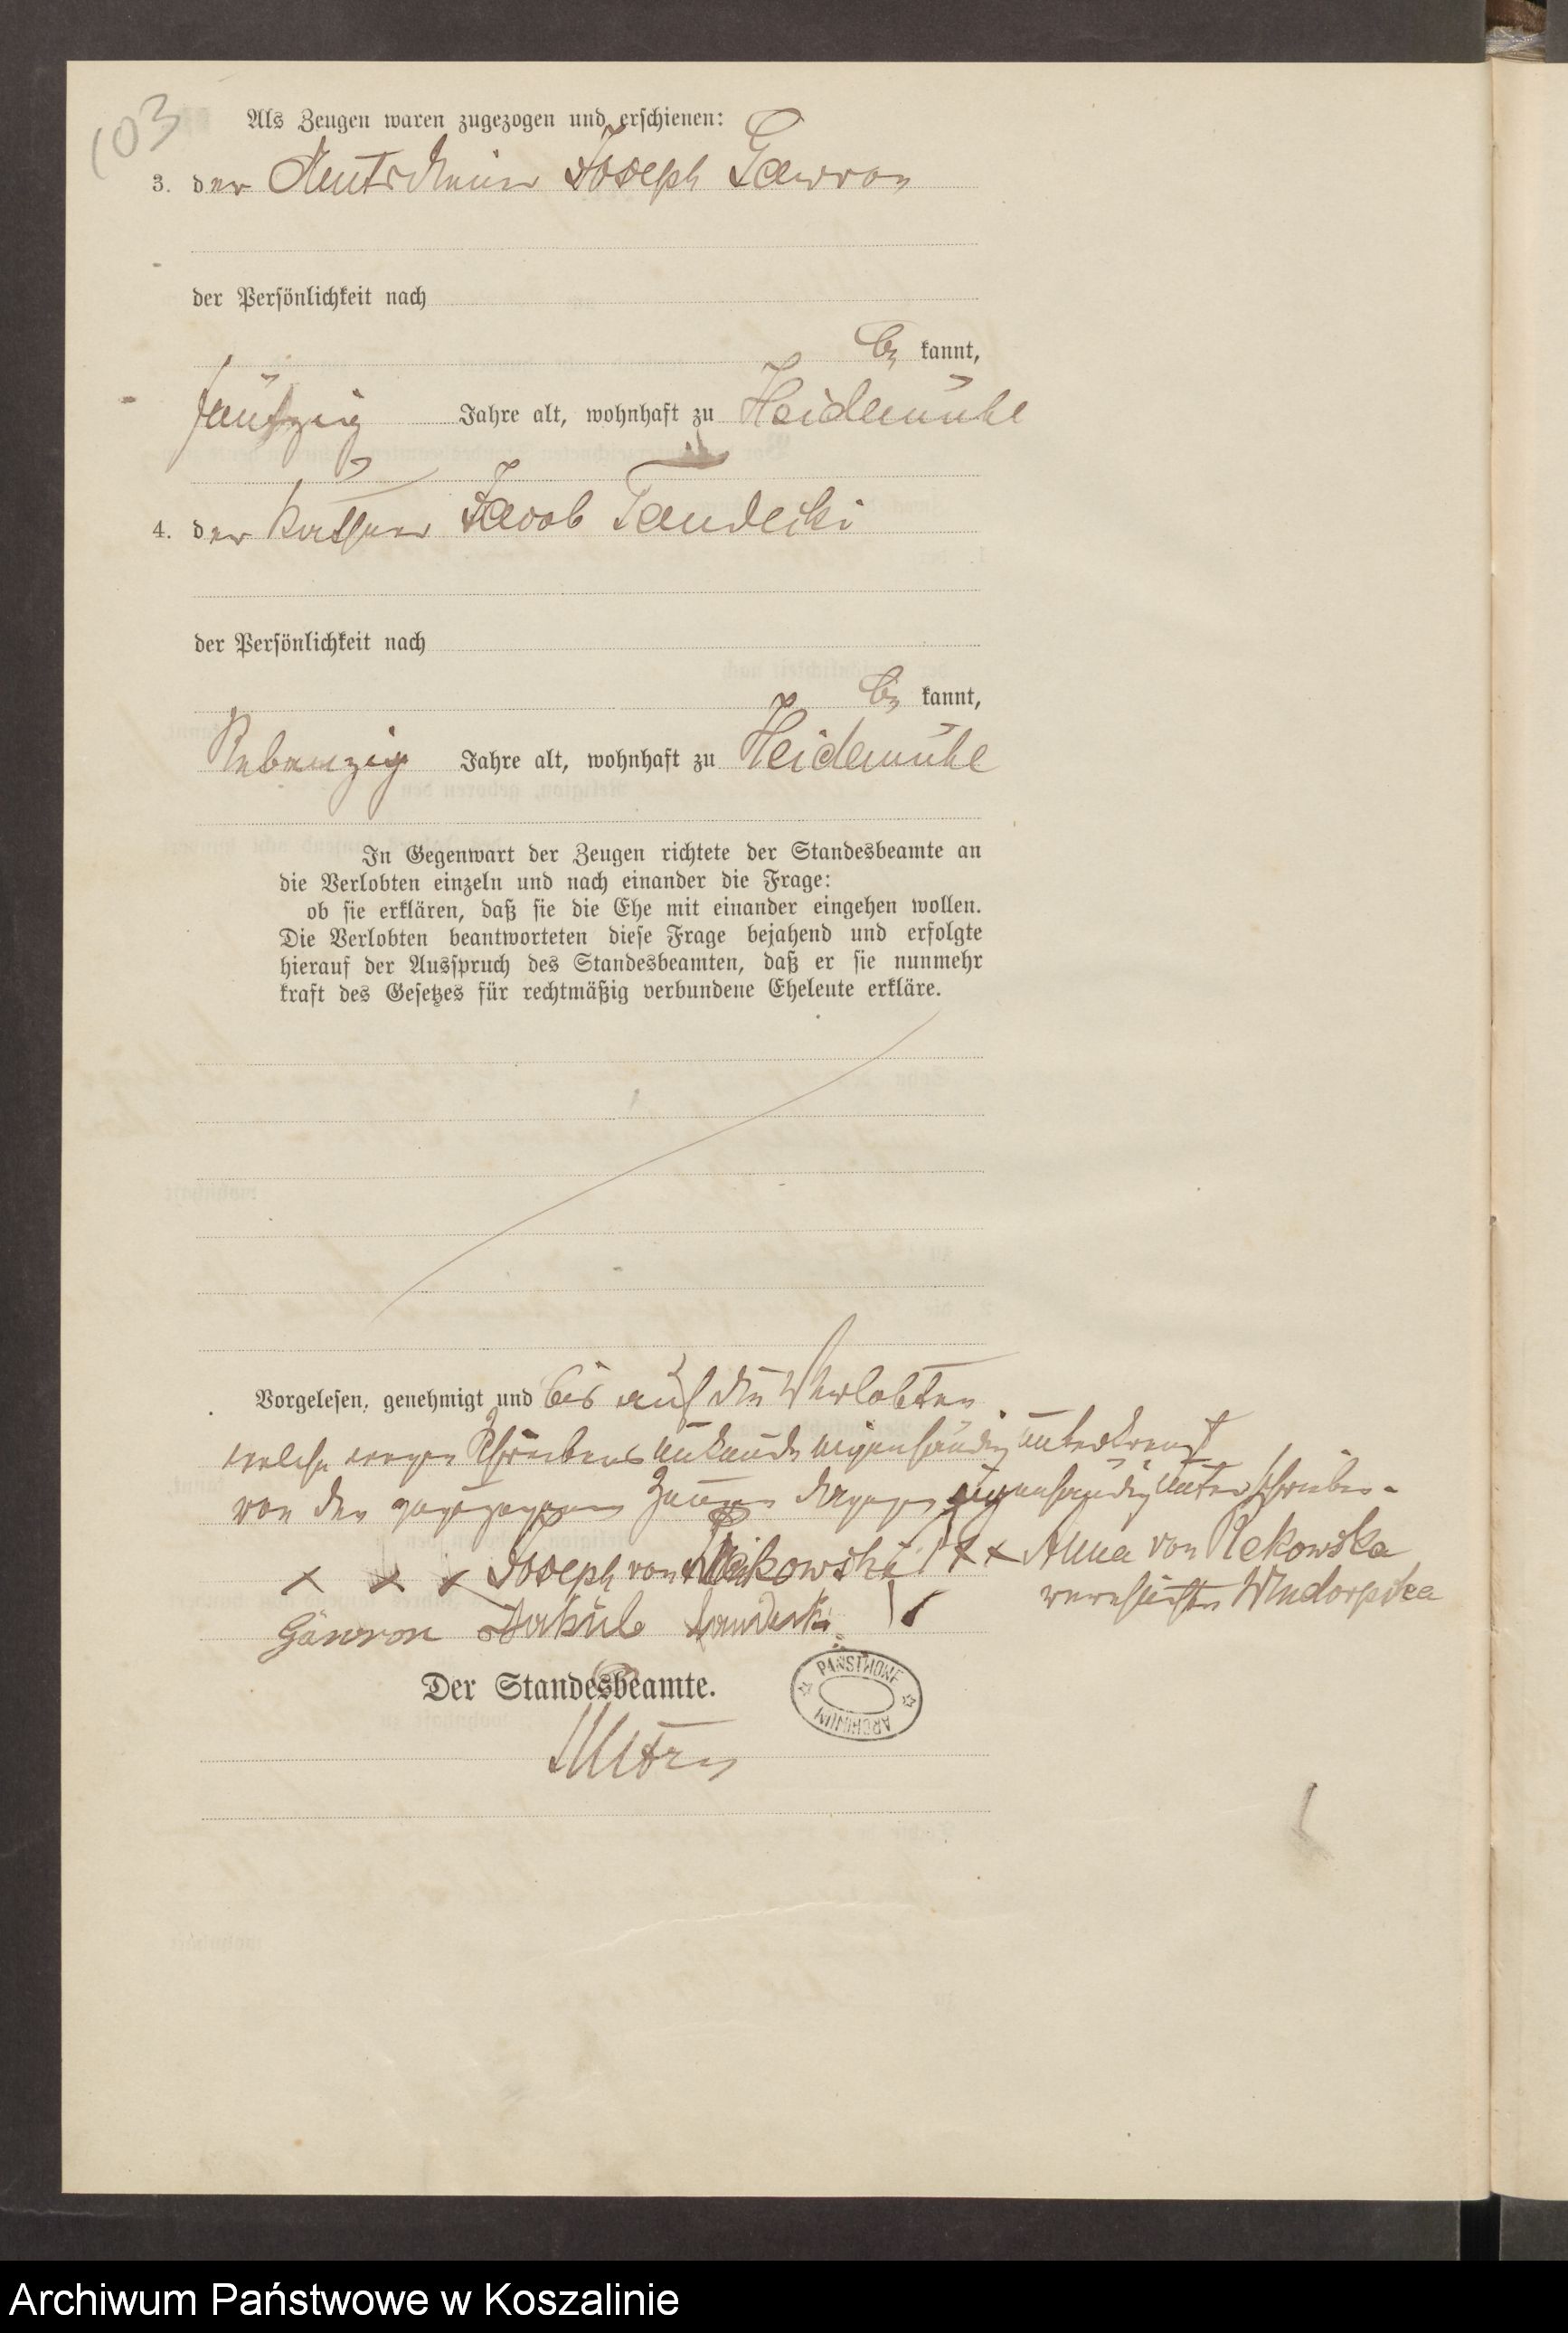 103
Als Zeugen waren zugezogen und erschienen:
3. der Amtsdiener Joseph Gawron
der Persönlichkeit nach
be kannt,
fünfzig Jahre alt, wohnhaft zu Heidemühl
4. der Käthner Jacob Tandecki
der Persönlichkeit nach
be kannt,
Siebenzig Jahre alt, wohnhaft zu Heidemühl
In Gegenwart der Zeugen richtete der Standesbeamte an
die Verlobten einzeln und nach einander die Frage:
ob sie erklären, daß sie die Ehe mit einander eingehen wollen.
Die Verlobten beantworteten diese Frage bejahend und erfolgte
hierauf der Ausspruch des Standesbeamten, daß er sie nunmehr
kraft des Gesetzes für rechtmäßig verbundene Eheleute erkläre.
Vorgelesen, genehmigt und bis auf die Verlobten
welche wegen Schreibens unkunde eigenhändig unterkreuzt
von den zugezogenen Zeugen dagegen eigenhändig unterschrieben.
x x x Joseph von x x Anna von Rekowska
verehelichte
Gawron Jakub Tandecki
Der Standesbeamte.
PAŃSTWOWE ARCHIWUM
Archiwum Państwowe w Koszalinie